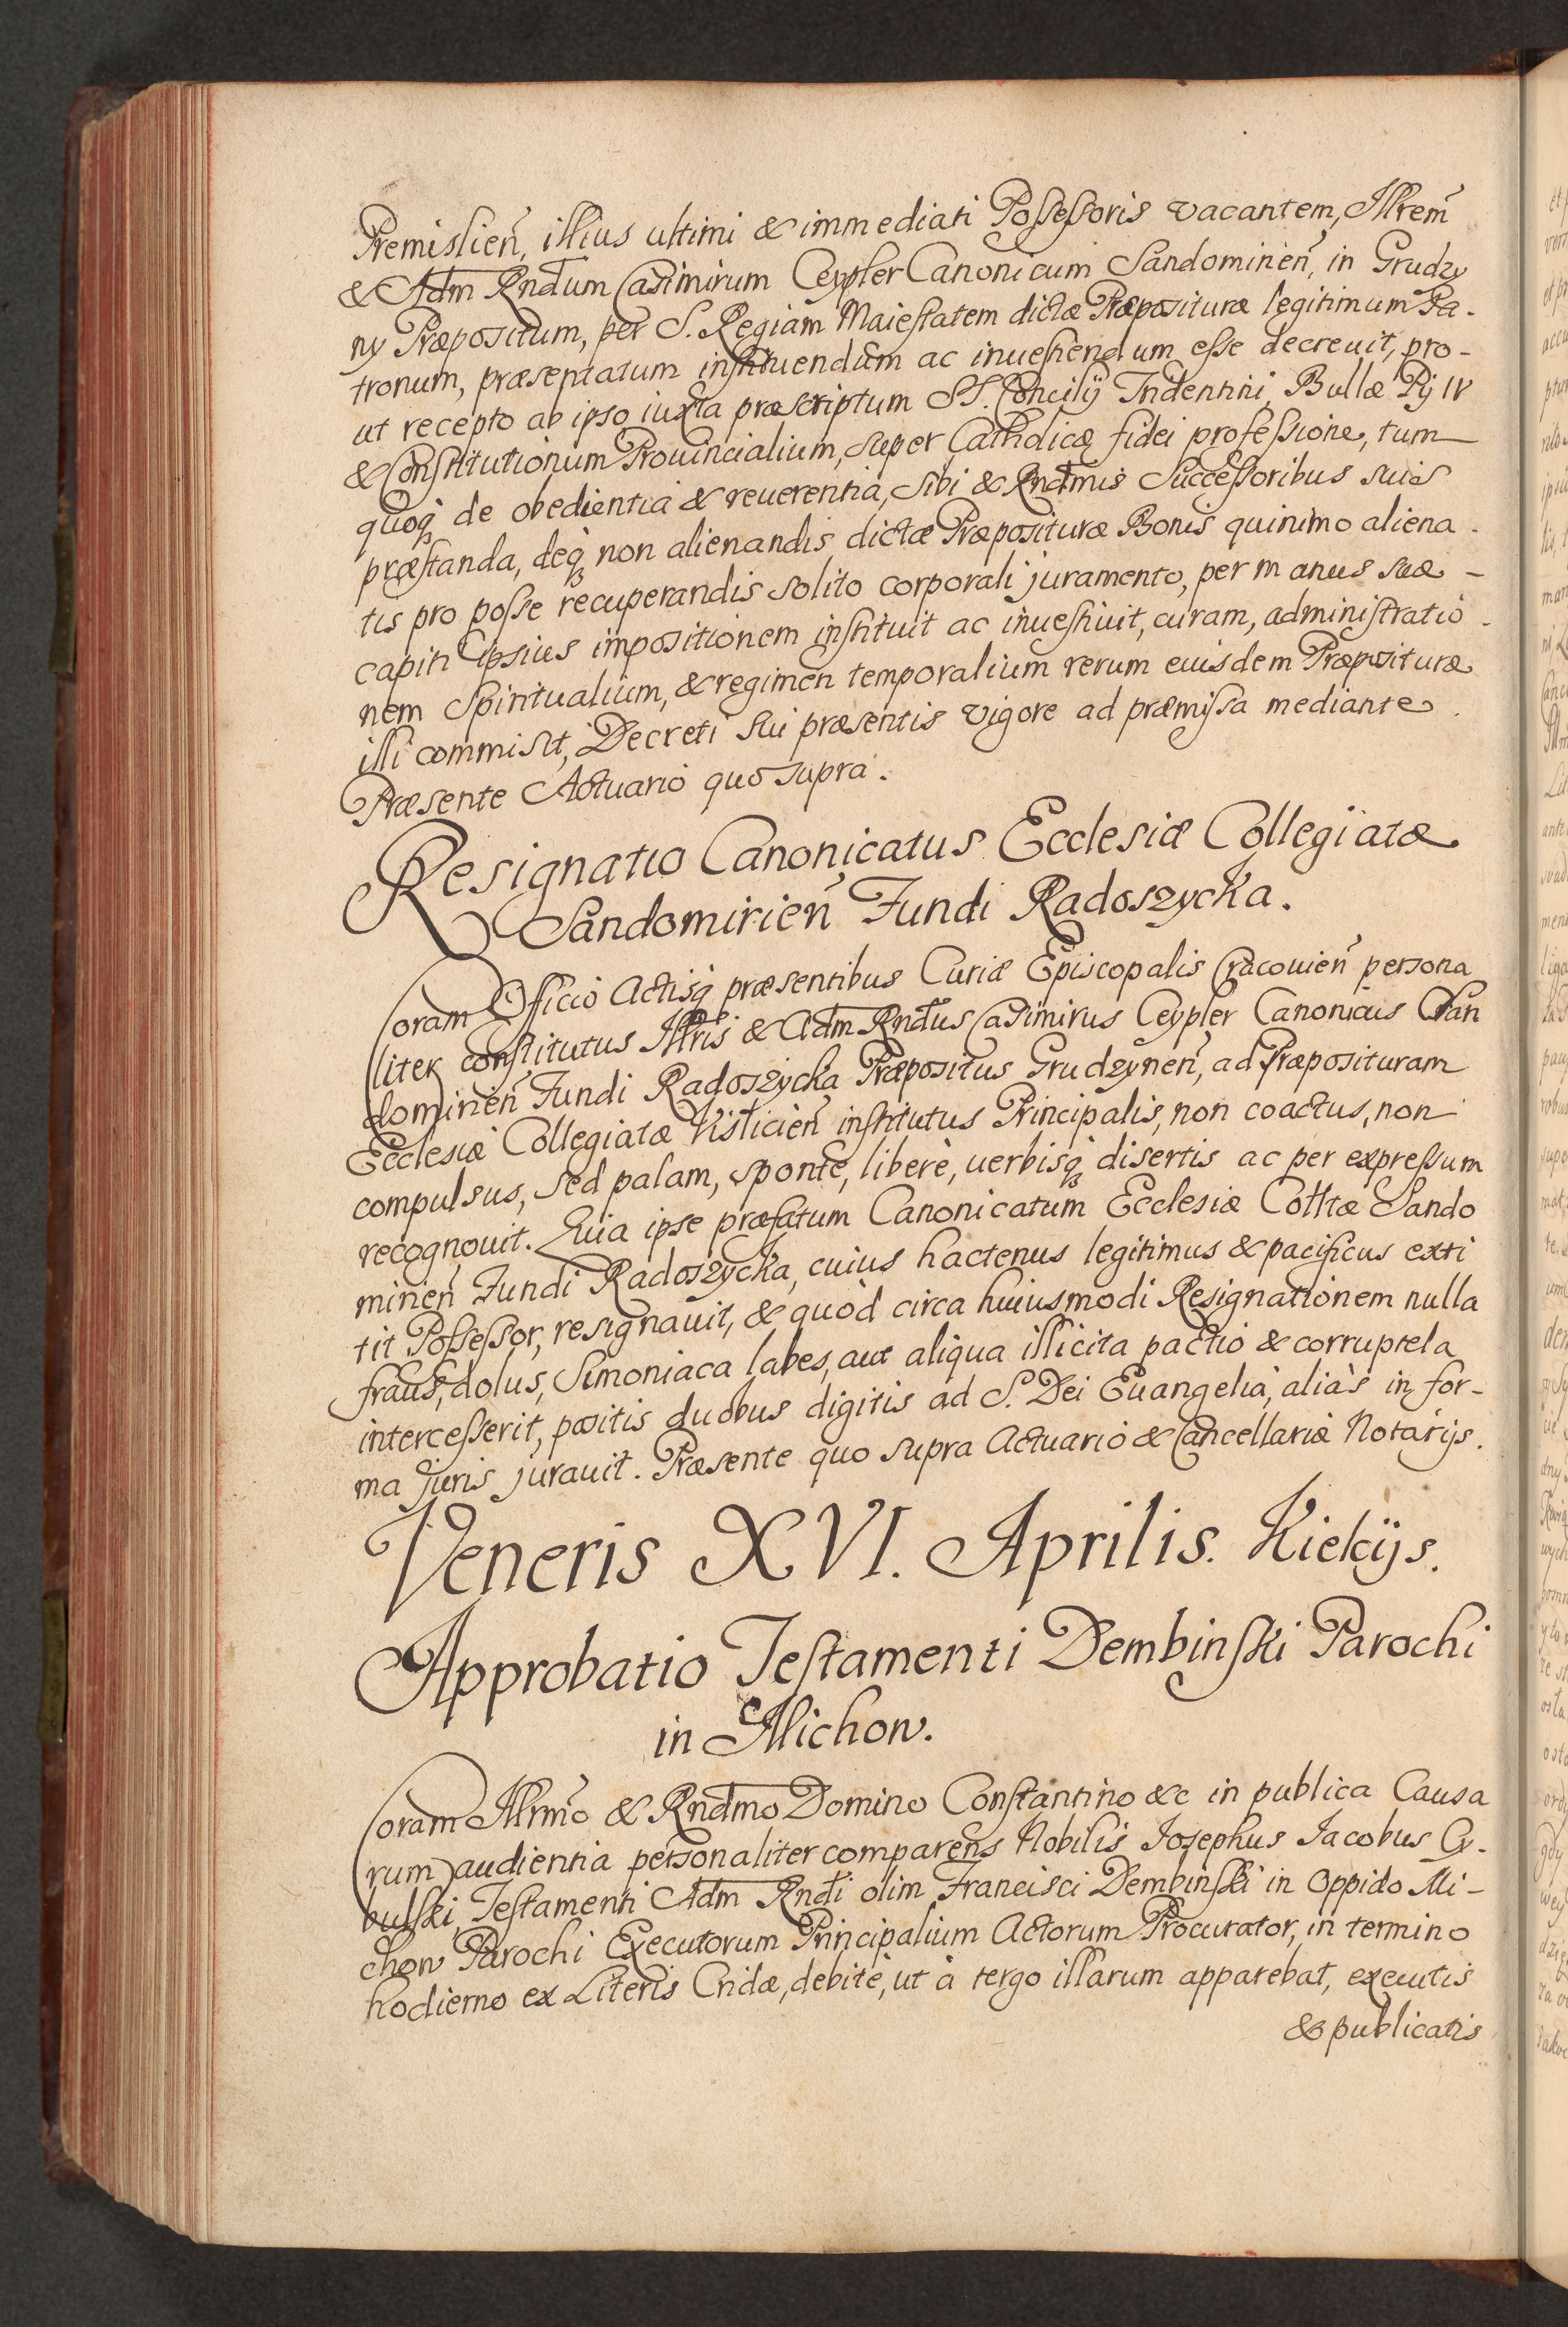 Premislien̄, illius ultimi & immediati Possessoris vacantem, Illrem̄
& Adm Rndum Casimirum Ceypler Canonicum Sandomirien̄, in Grudzy
ny Præpositum, per S. Regiam Maiestatem dictæ Præposituræ legitimum Pa-
tronum, præsentatum instituendum ac inuestiendum esse decreuit, pro-
ut recepto ab ipso iuxta præscriptum SS. Concilÿ Tridentini, Bullæ Pÿ IV
& Constitutionum Prouincialium, super Catholicæ fidei professione, tum
quoq; de obedientia & reuerentia, sibi & Rndmis Successoribus suis
præstanda, deq; non alienandis dictæ Præposituræ Bonis quinimo aliena-
tis pro posse recuperandis solito corporali juramento, per manus suæ
capiti ipsius impositionem instituit ac inuestiuit, curam, administratio-
nem Spiritualium, & regimen temporalium rerum euisdem Præposituræ
illi commisit, Decreti sui præsentis vigore ad præmissa mediante.
Præsente Actuario quo supra.
Resignatio Canonicatus Ecclesiæ Collegiatæ
Sandomirien̄ Fundi Radoszycka.
Coram Officio Actisq; præsentibus Curiæ Episcopalis Cracouien̄ persona
liter constitutus Illris & Adm Rndus Casimirus Ceypler Canonicus San
domirien̄ Fundi Radoszycka Præpositus Grudzynen̄, ad Præposituram
Ecclesiæ Collegiatæ Visticien̄ institutus Principalis, non coactus, non
compulsus, sed palam, sponte, liberè, uerbisq; disertis ac per expressum
recognouit. Quia ipse præfatum Canonicatum Ecclesiæ Collræ Sando
mirien̄ Fundi Radoszycka, cuius hactenus legitimus & pacificus exti
tit Possessor, resignauit, & quòd circa huiusmodi Resignationem nulla
fraus, dolus, Simoniaca labes, aut aliqua illicita pactio & corruptela
intercesserit, positis duobus digitis ad S. Dei Euangelia, aliàs in for-
ma Juris jurauit. Præsente quo supra Actuario & Cancellariæ Notarÿs.
Veneris XVI. Aprilis. Kielcÿs.
Approbatio Testamenti Dembinski Parochi
in Michow.
Coram Illrmō & Rndmo Domino Constantino &c in publica Causa
rum audientia personaliter comparens Nobilis Josephus Jacobus Cy-
bulski, Testamenti Adm Rndi olim Francisci Dembinski in Oppido Mi-
chow Parochi Executorum Principalium Actorum Procurator, in termino
hodierno ex Literis Cridæ, debitè, ut à tergo illarum apparebat, executis
& publicatis